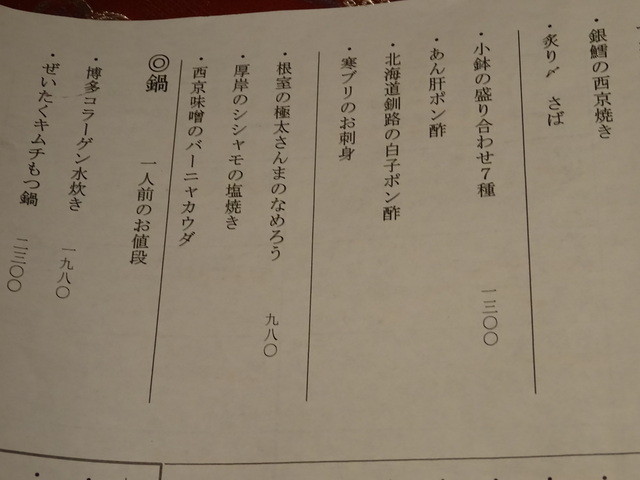 ・銀鱈の西京焼き
・炙り〆さば
・小鉢の盛り合わせ7種 一三〇〇
・あん肝ポン酢
・北海道釧路の白子ポン酢
・寒ブリのお刺身
・根室の極太さんまのなめろう 九八〇
・厚岸のシシャモの塩焼き
・西京味噌のバーニャカウダ
◎鍋 一人前のお値段
・博多コラーゲン水炊き 一九八〇
・ぜいたくキムチもつ鍋 二三〇〇